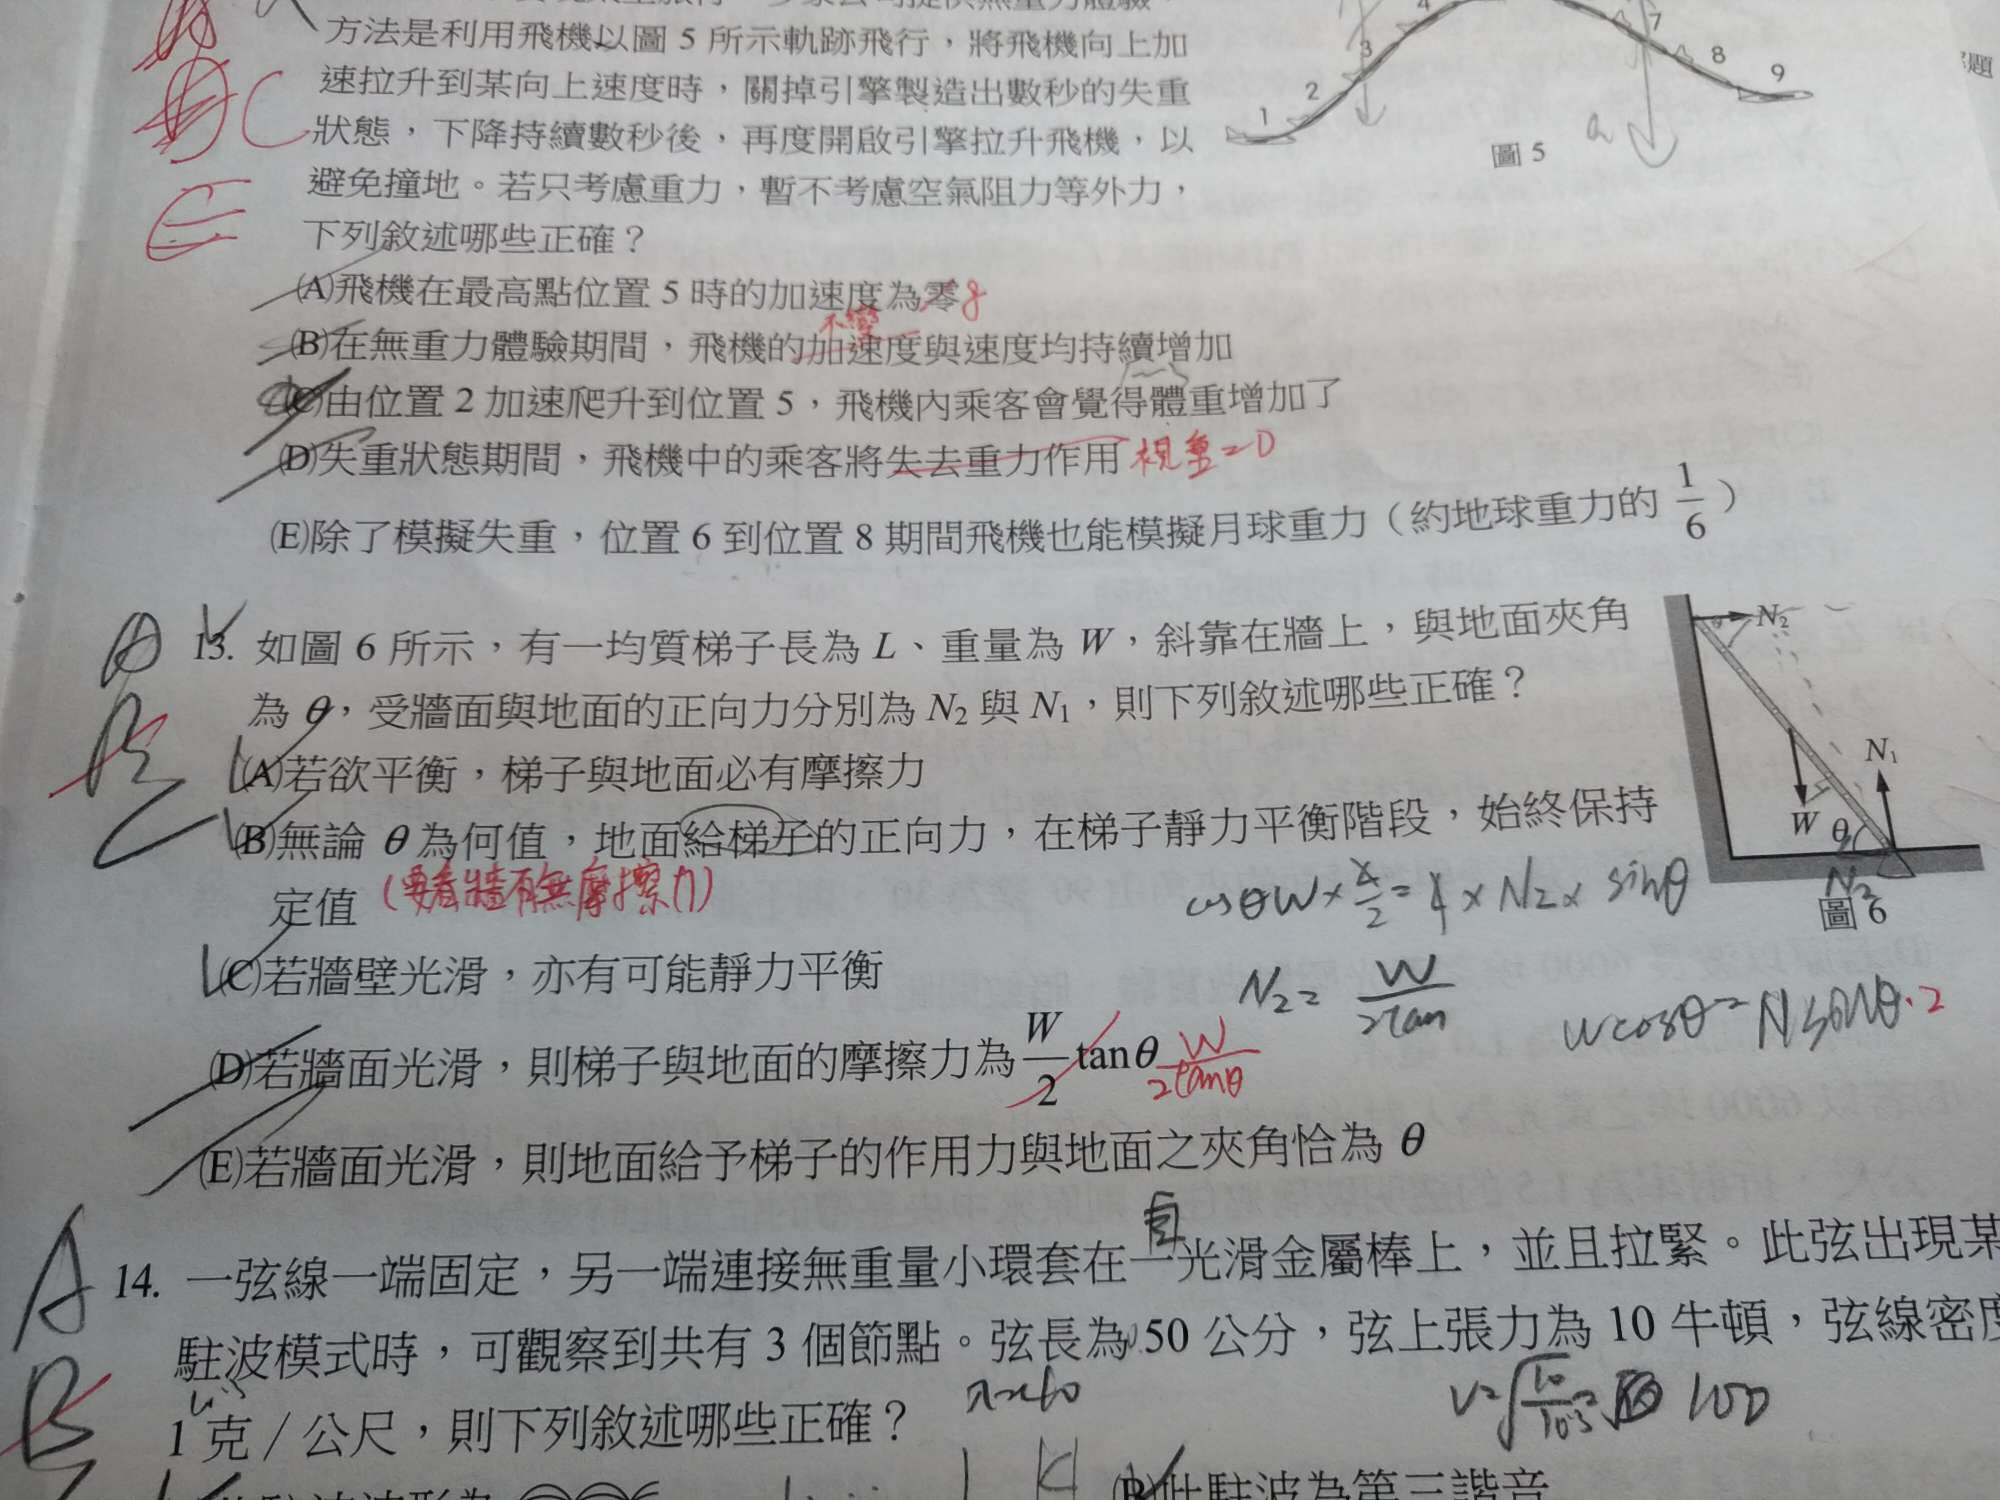 方法是利用飛機以圖 5 所示軌跡飛行，將飛機向上加
速拉升到某向上速度時，關掉引擎製造出數秒的失重
狀態，下降持續數秒後，再度開啟引擎拉升飛機，以
避免撞地。若只考慮重力，暫不考慮空氣阻力等外力，
下列敘述哪些正確？
1 2 3 4 7 8 9
a
圖 5
C
E
(A)飛機在最高點位置 5 時的加速度為零 g
不變
(B)在無重力體驗期間，飛機的加速度與速度均持續增加
(C)由位置 2 加速爬升到位置 5，飛機內乘客會覺得體重增加了
(D)失重狀態期間，飛機中的乘客將失去重力作用 視重=0
(E)除了模擬失重，位置 6 到位置 8 期間飛機也能模擬月球重力（約地球重力的 1/6）
13. 如圖 6 所示，有一均質梯子長為 L、重量為 W，斜靠在牆上，與地面夾角
為 θ，受牆面與地面的正向力分別為 N₂ 與 N₁，則下列敘述哪些正確？
(A)若欲平衡，梯子與地面必有摩擦力
(B)無論 θ 為何值，地面給梯子的正向力，在梯子靜力平衡階段，始終保持
定值 (要看牆有無摩擦力)
(C)若牆壁光滑，亦有可能靜力平衡
(D)若牆面光滑，則梯子與地面的摩擦力為 W/2 tanθ W/2tanθ
(E)若牆面光滑，則地面給予梯子的作用力與地面之夾角恰為 θ
N₂
N₁
W θ
N₂
圖 6
N₂= W/2tan
wcosθ=Nsinθ·2
A
B
14. 一弦線一端固定，另一端連接無重量小環套在一光滑金屬棒上，並且拉緊。此弦出現某
駐波模式時，可觀察到共有 3 個節點。弦長為 50 公分，弦上張力為 10 牛頓，弦線密度
1 克／公尺，則下列敘述哪些正確？
100
(B)此駐波為第三諧音